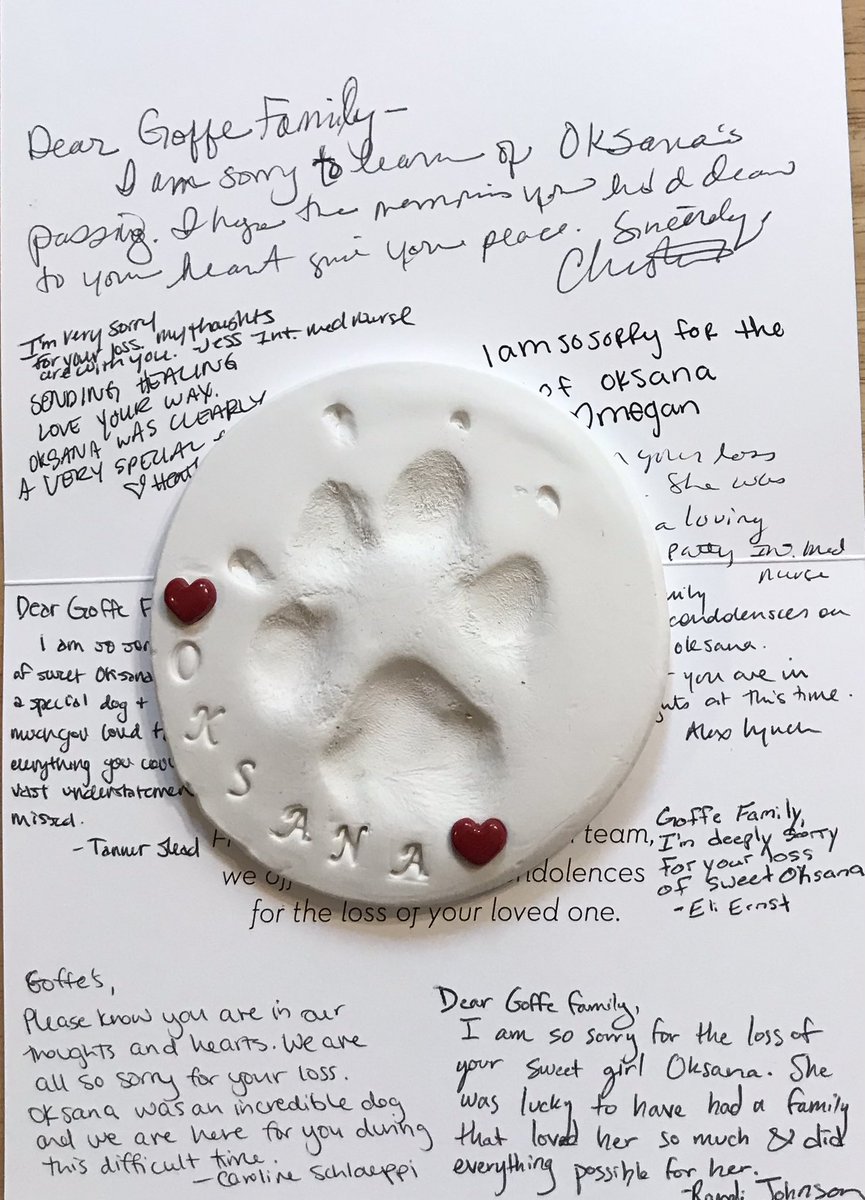 Dear Goffe Family—
I am sorry to learn of Oksana's
passing. I hope the memories you hold dear
to your heart give you peace. Sincerely,
I'm very sorry
for your loss. my thoughts
are with you. Jess Int. med nurse
SENDING HEALING
LOVE YOUR WAY.
OKSANA WAS CLEARLY
A VERY SPECIAL
I am so sorry for the
of Oksana
megan
your loss
She was
a loving
Patty Int. med
nurse
Dear Goffe F
I am so sor
of sweet Oksana
a special dog +
much you loved
everything you cou
vast understatemen
missed.
- Tanner Stead
mily
condolences on
Oksana.
you are in
hts at this time.
Alex Lynch
OKSANA
Goffe Family,
I'm deeply sorry
for your loss
of sweet Oksana
- Eli Ernst
team,
we ndolences
for the loss of your loved one.
Goffe's,
Please know you are in our
thoughts and hearts. We are
all so sorry for your loss.
Oksana was an incredible dog
and we are here for you during
this difficult time.
- Caroline Schlaeppi
Dear Goffe Family,
I am so sorry for the loss of
your sweet girl Oksana. She
was lucky to have had a family
that loved her so much & did
everything possible for her.
- Randi Johnson